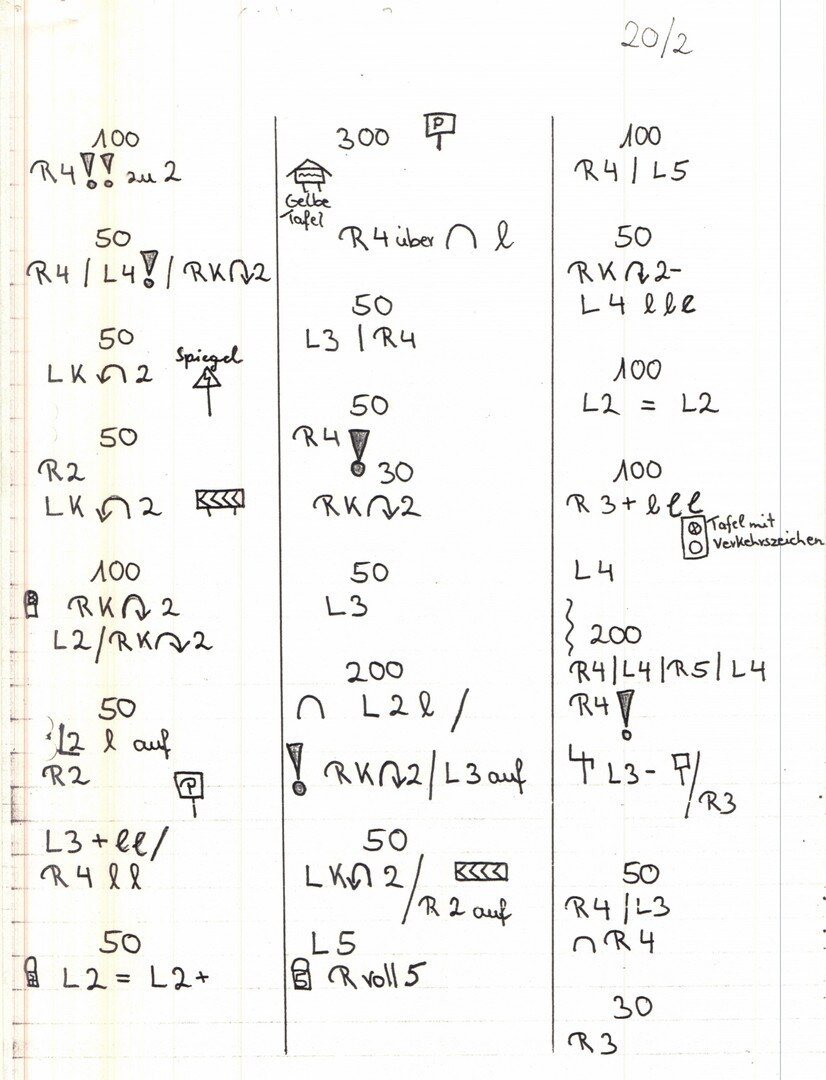 20/2
100
R4!! zu 2
50
R4 / L4! / RK↷2
50
LK ↶ 2
Spiegel
50
R2
LK ↶ 2
100
RK ↷ 2
L2/RK↷2
50
L2 l auf
R2
P
L3 + ll /
R4 ll
50
L2 = L2+
300
P
Gelbe
Tafel
R4 über ∩ l
50
L3 / R4
50
R4 !
30
RK↷2
50
L3
200
∩ L2 l /
! RK↷2/L3 auf
50
LK↶ 2 /
R2 auf
L5
5 R voll 5
100
R4 / L5
50
RK↷2-
L4 lll
100
L2 = L2
100
R3+ lll
Tafel mit
Verkehrszeichen
L4
200
R4/L4/R5/L4
R4 !
L3- /
R3
50
R4/L3
∩ R4
30
R3